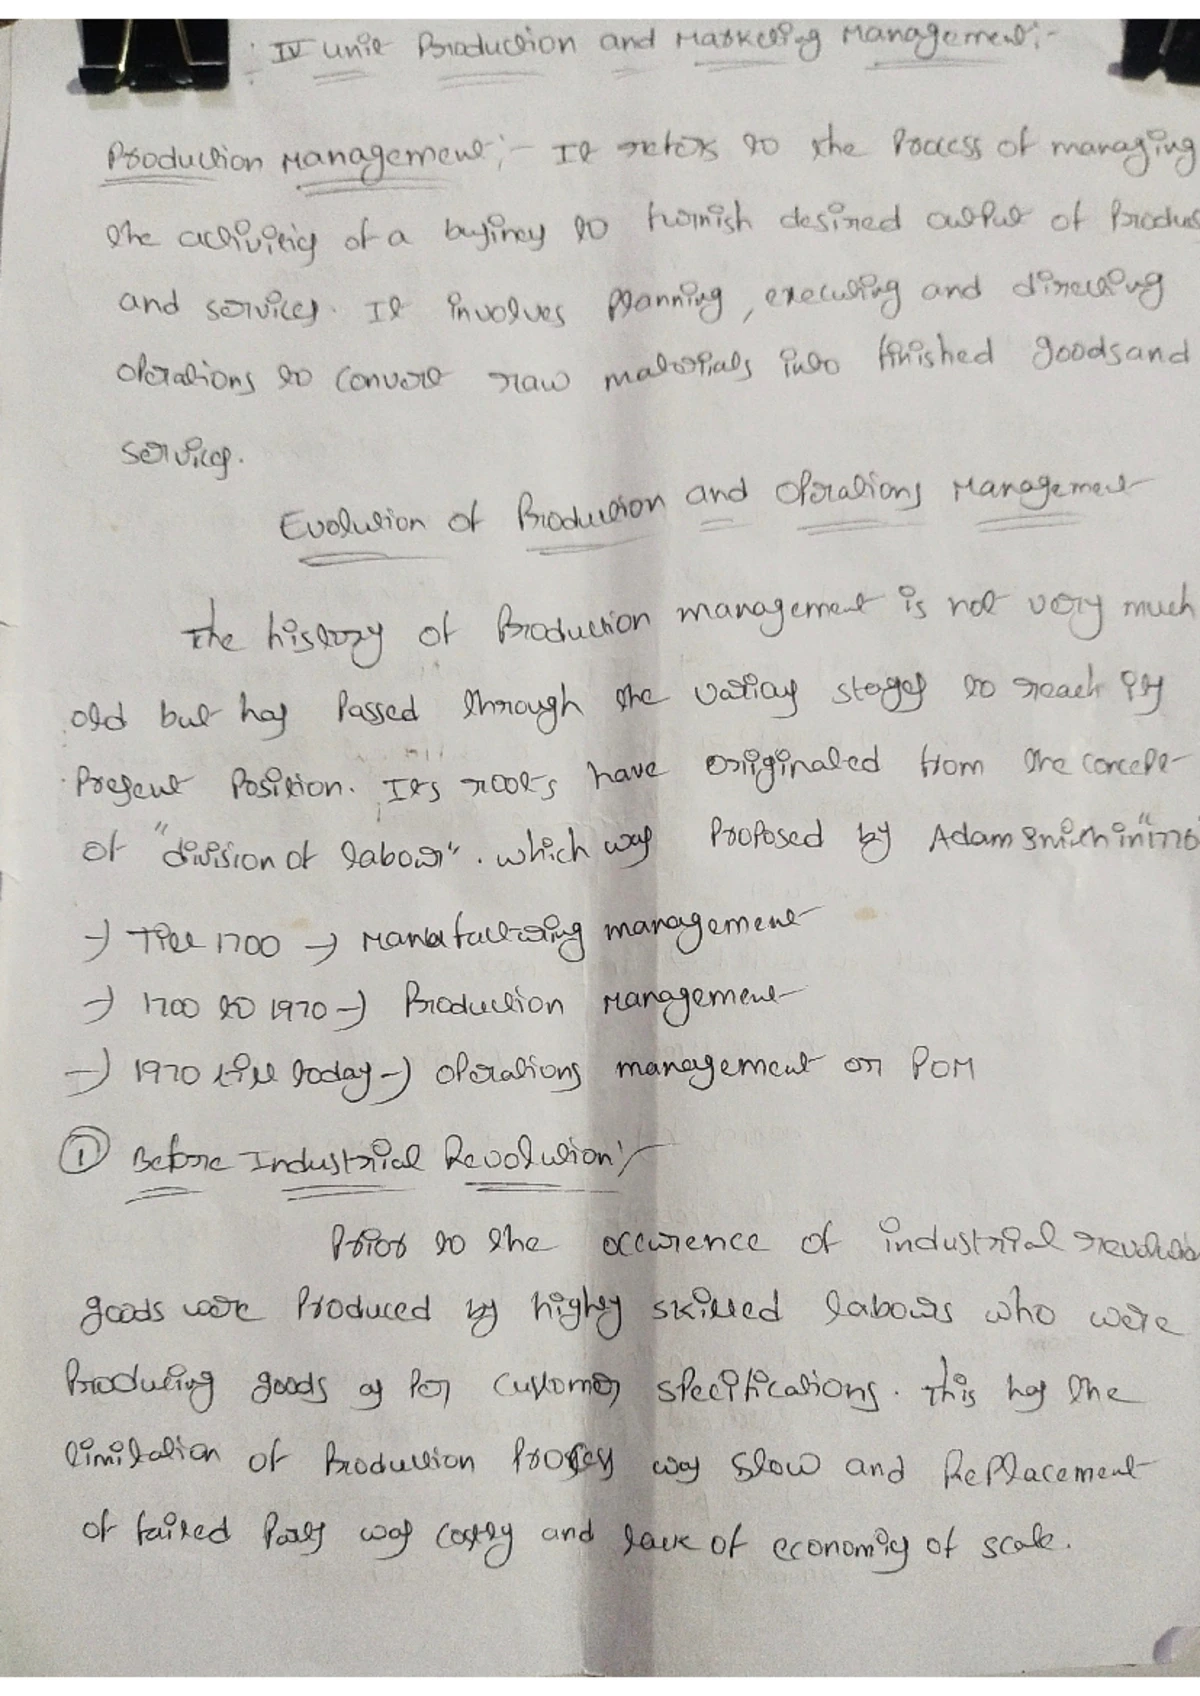 IV unit Production and Marketing Management:-
Production Management:- It refers to the Process of managing
the activities of a business to furnish desired output of Produc
and services. It involves Planning, executing and directing
operations to convert raw materials into finished goods and
services.
Evolution of Production and Operations Management
The history of Production management is not very much
old but has Passed through the various stages to reach its
Present Position. Its roots have originated from the concept
of "division of labour". which was Proposed by Adam Smith in "1776
→ Till 1700 → Manufacturing management
→ 1700 to 1970 → Production Management
→ 1970 till today → Operations management or POM
① Before Industrial Revolution:-
Prior to the occurence of industrial revolutio
goods were Produced by highly skilled labours who were
Producing goods as Per customer specifications. This has the
limitation of Production Process was slow and Replacement
of failed Parts was costly and lack of economies of scale.